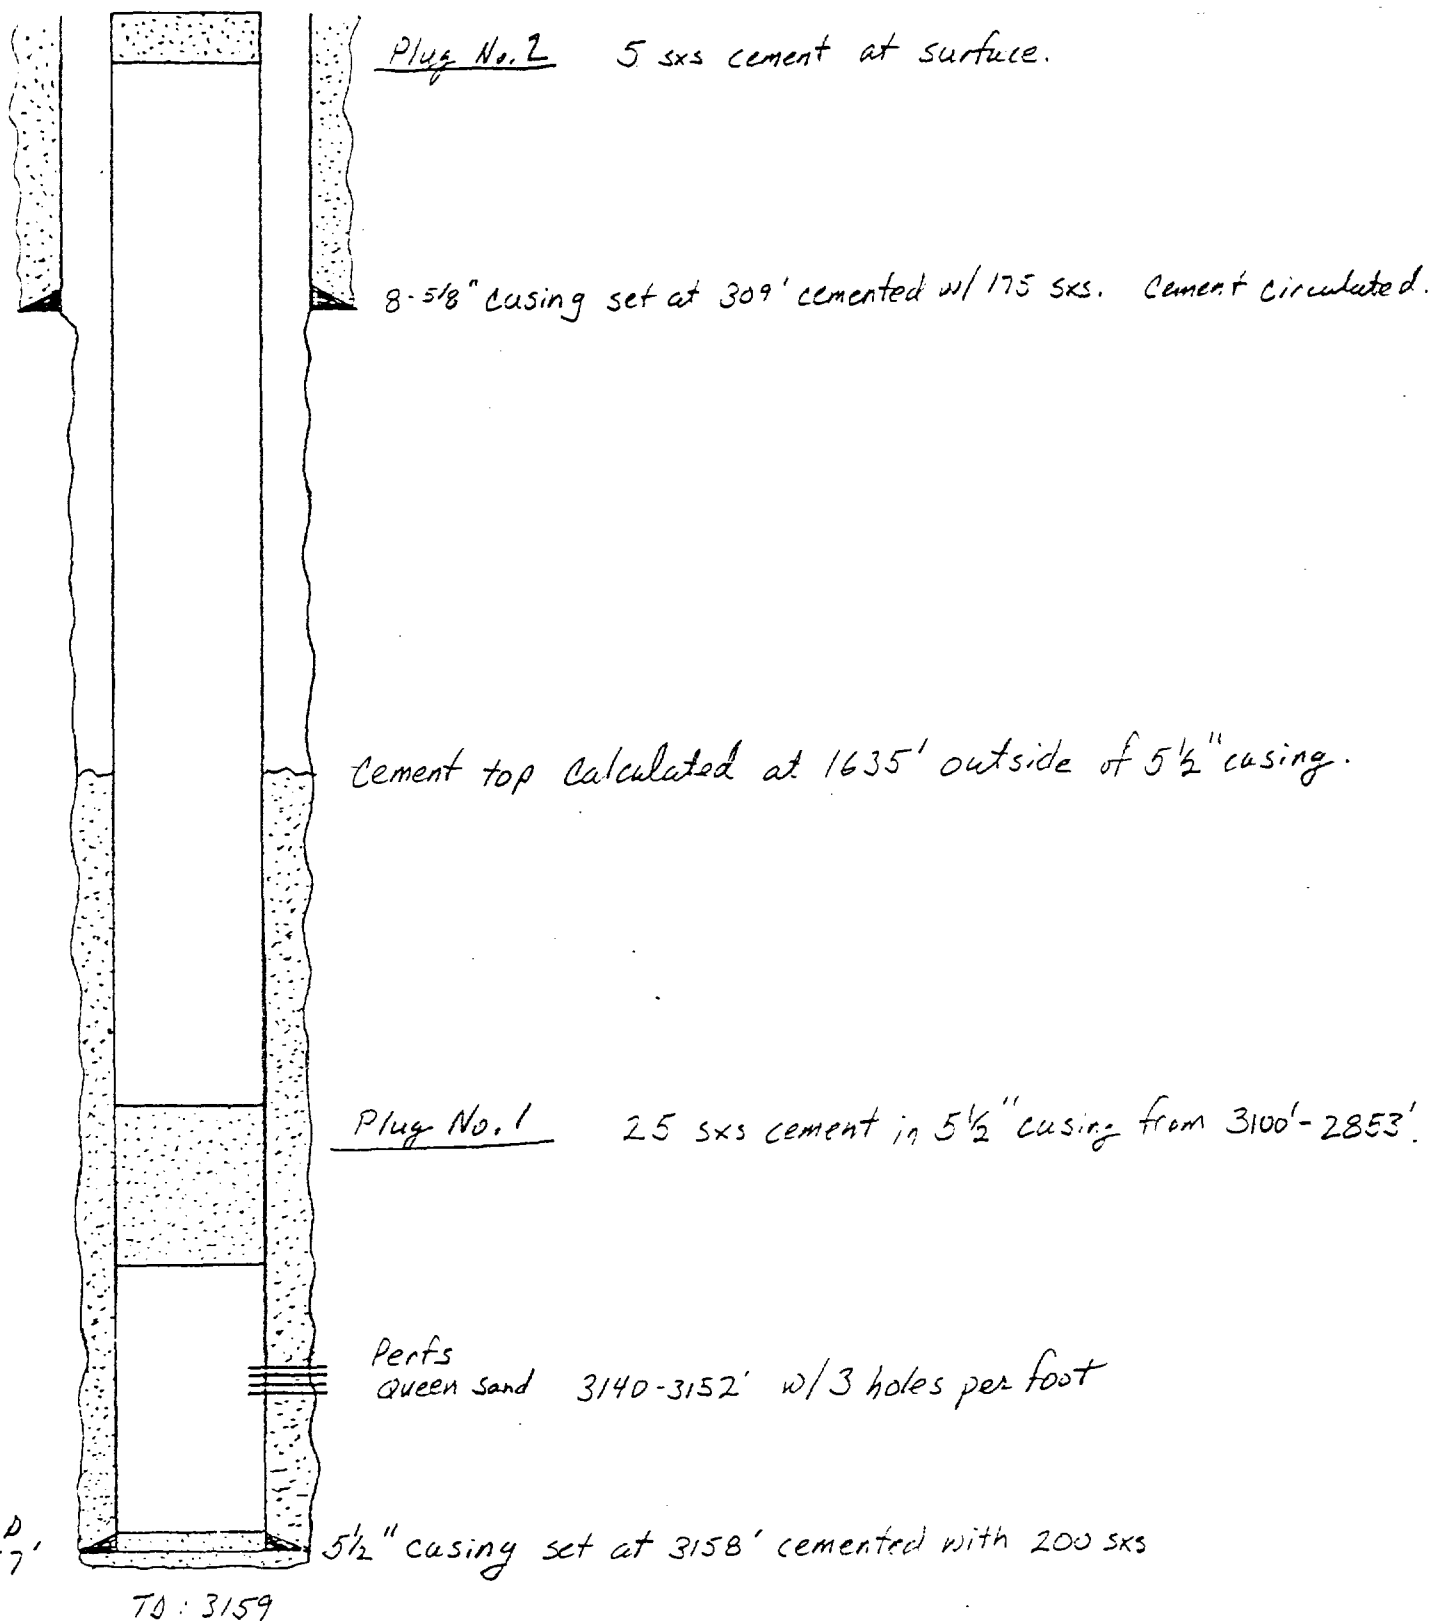 Plug No. 2 5 sxs cement at surface.
8-5/8" casing set at 309' cemented w/ 175 sxs. Cement circulated.
Cement top calculated at 1635' outside of 5 1/2" casing.
Plug No. 1 25 sxs cement in 5 1/2" casing from 3100'-2853'.
Perfs
Queen Sand 3140-3152' w/3 holes per foot
D
7'
5 1/2" casing set at 3158' cemented with 200 sxs
TD: 3159